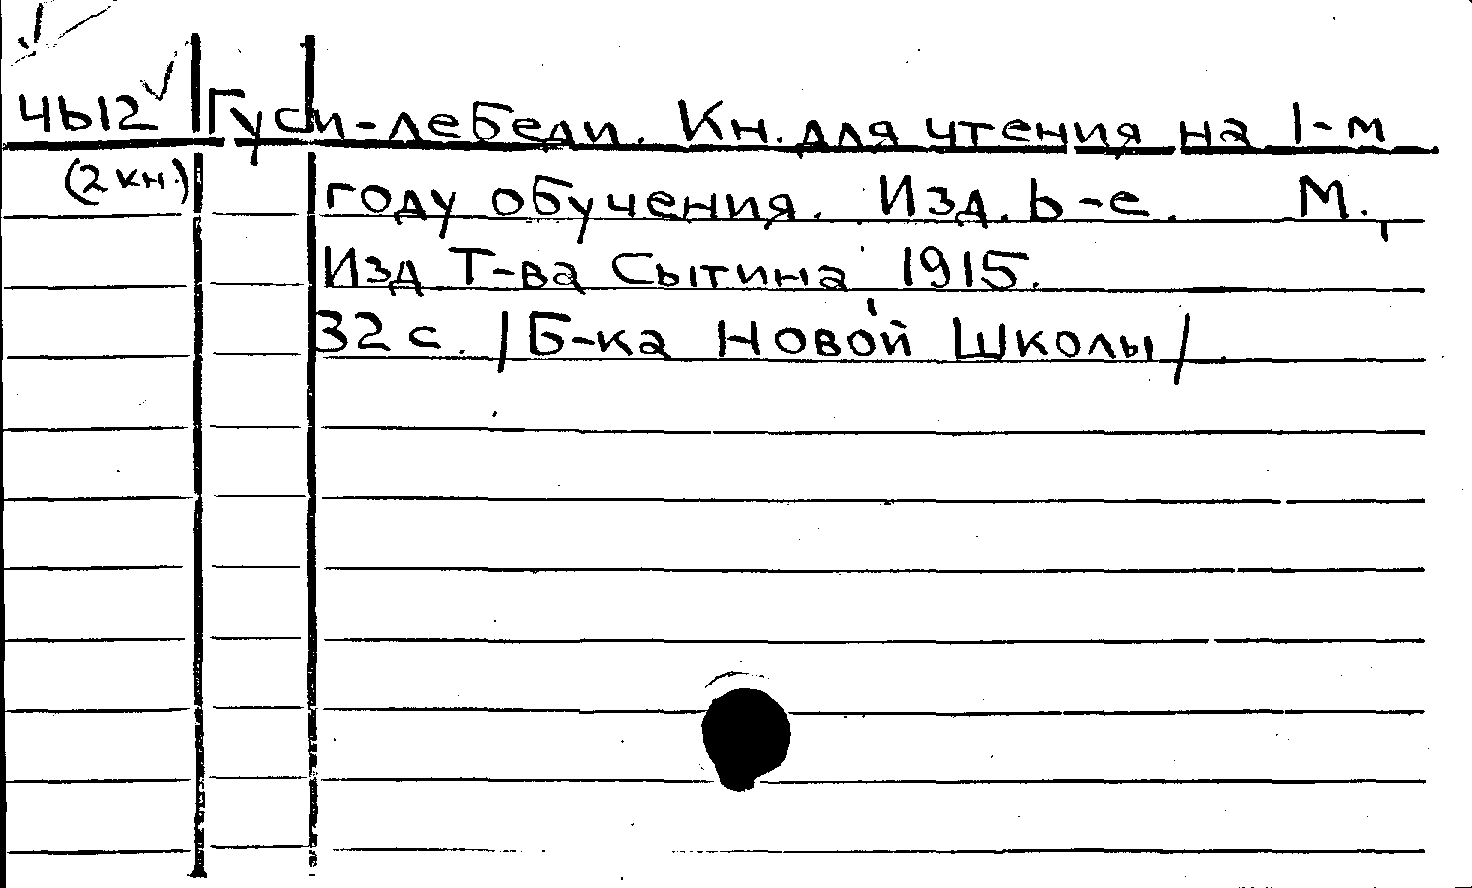 4612 Гуси-лебеди. Кн. для чтения на 1-м
(2 кн.) году обучения. Изд. 6-е. М.,
Изд Т-ва Сытина, 1915.
32 с. /Б-ка Новой Школы/